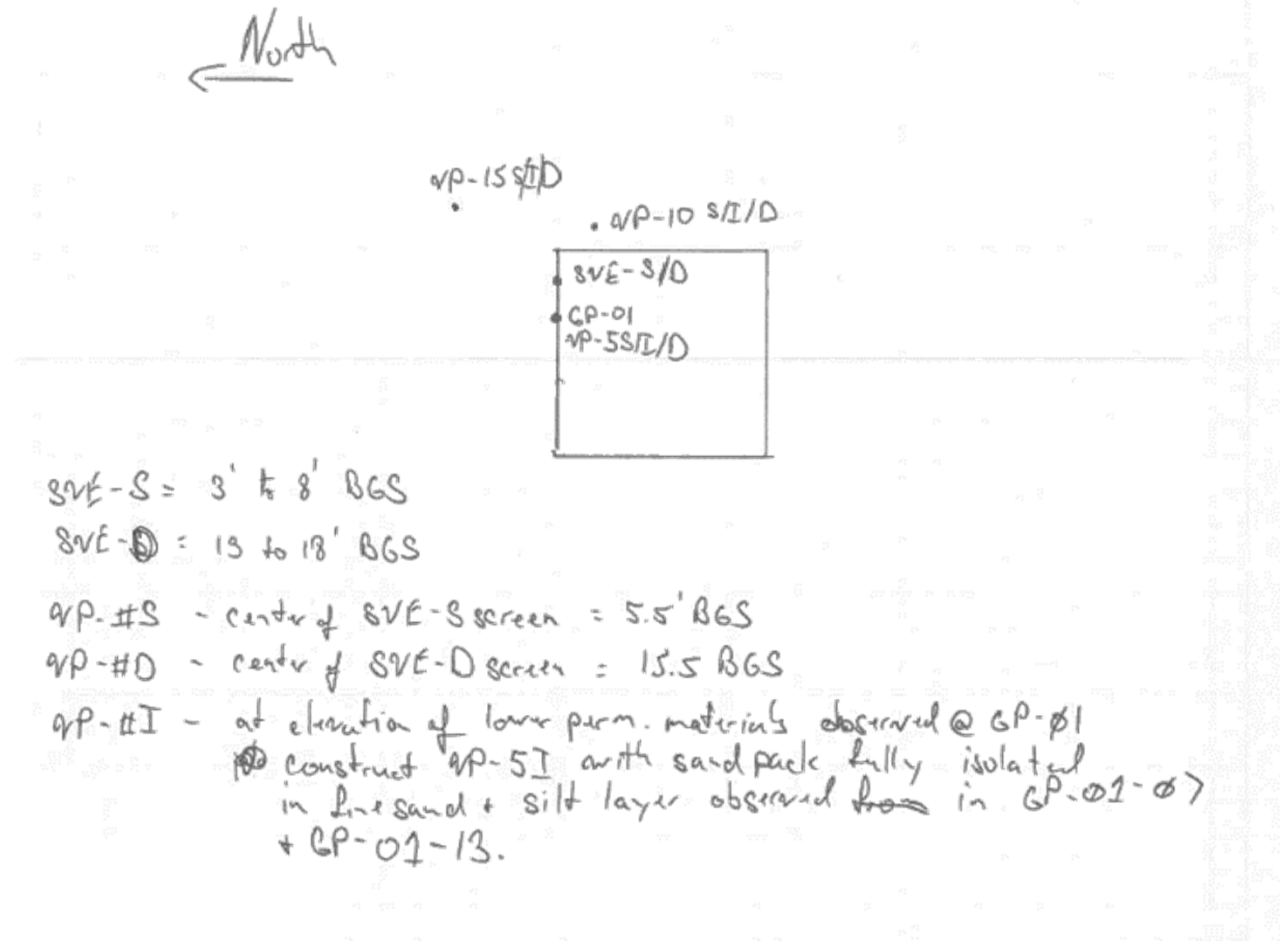 North
VP-15 S/I/D
VP-10 S/I/D
SVE-S/D
GP-01
VP-5S/I/D
SVE-S = 3' to 8' BGS
SVE-D = 13 to 18' BGS
VP-#S - center of SVE-S screen = 5.5' BGS
VP-#D - center of SVE-D screen = 15.5 BGS
VP-#I - at elevation of lower perm. materials observed @ GP-01
construct VP-5I with sand pack fully isolated
in fine sand + silt layer observed from in GP-01-07
+ GP-01-13.